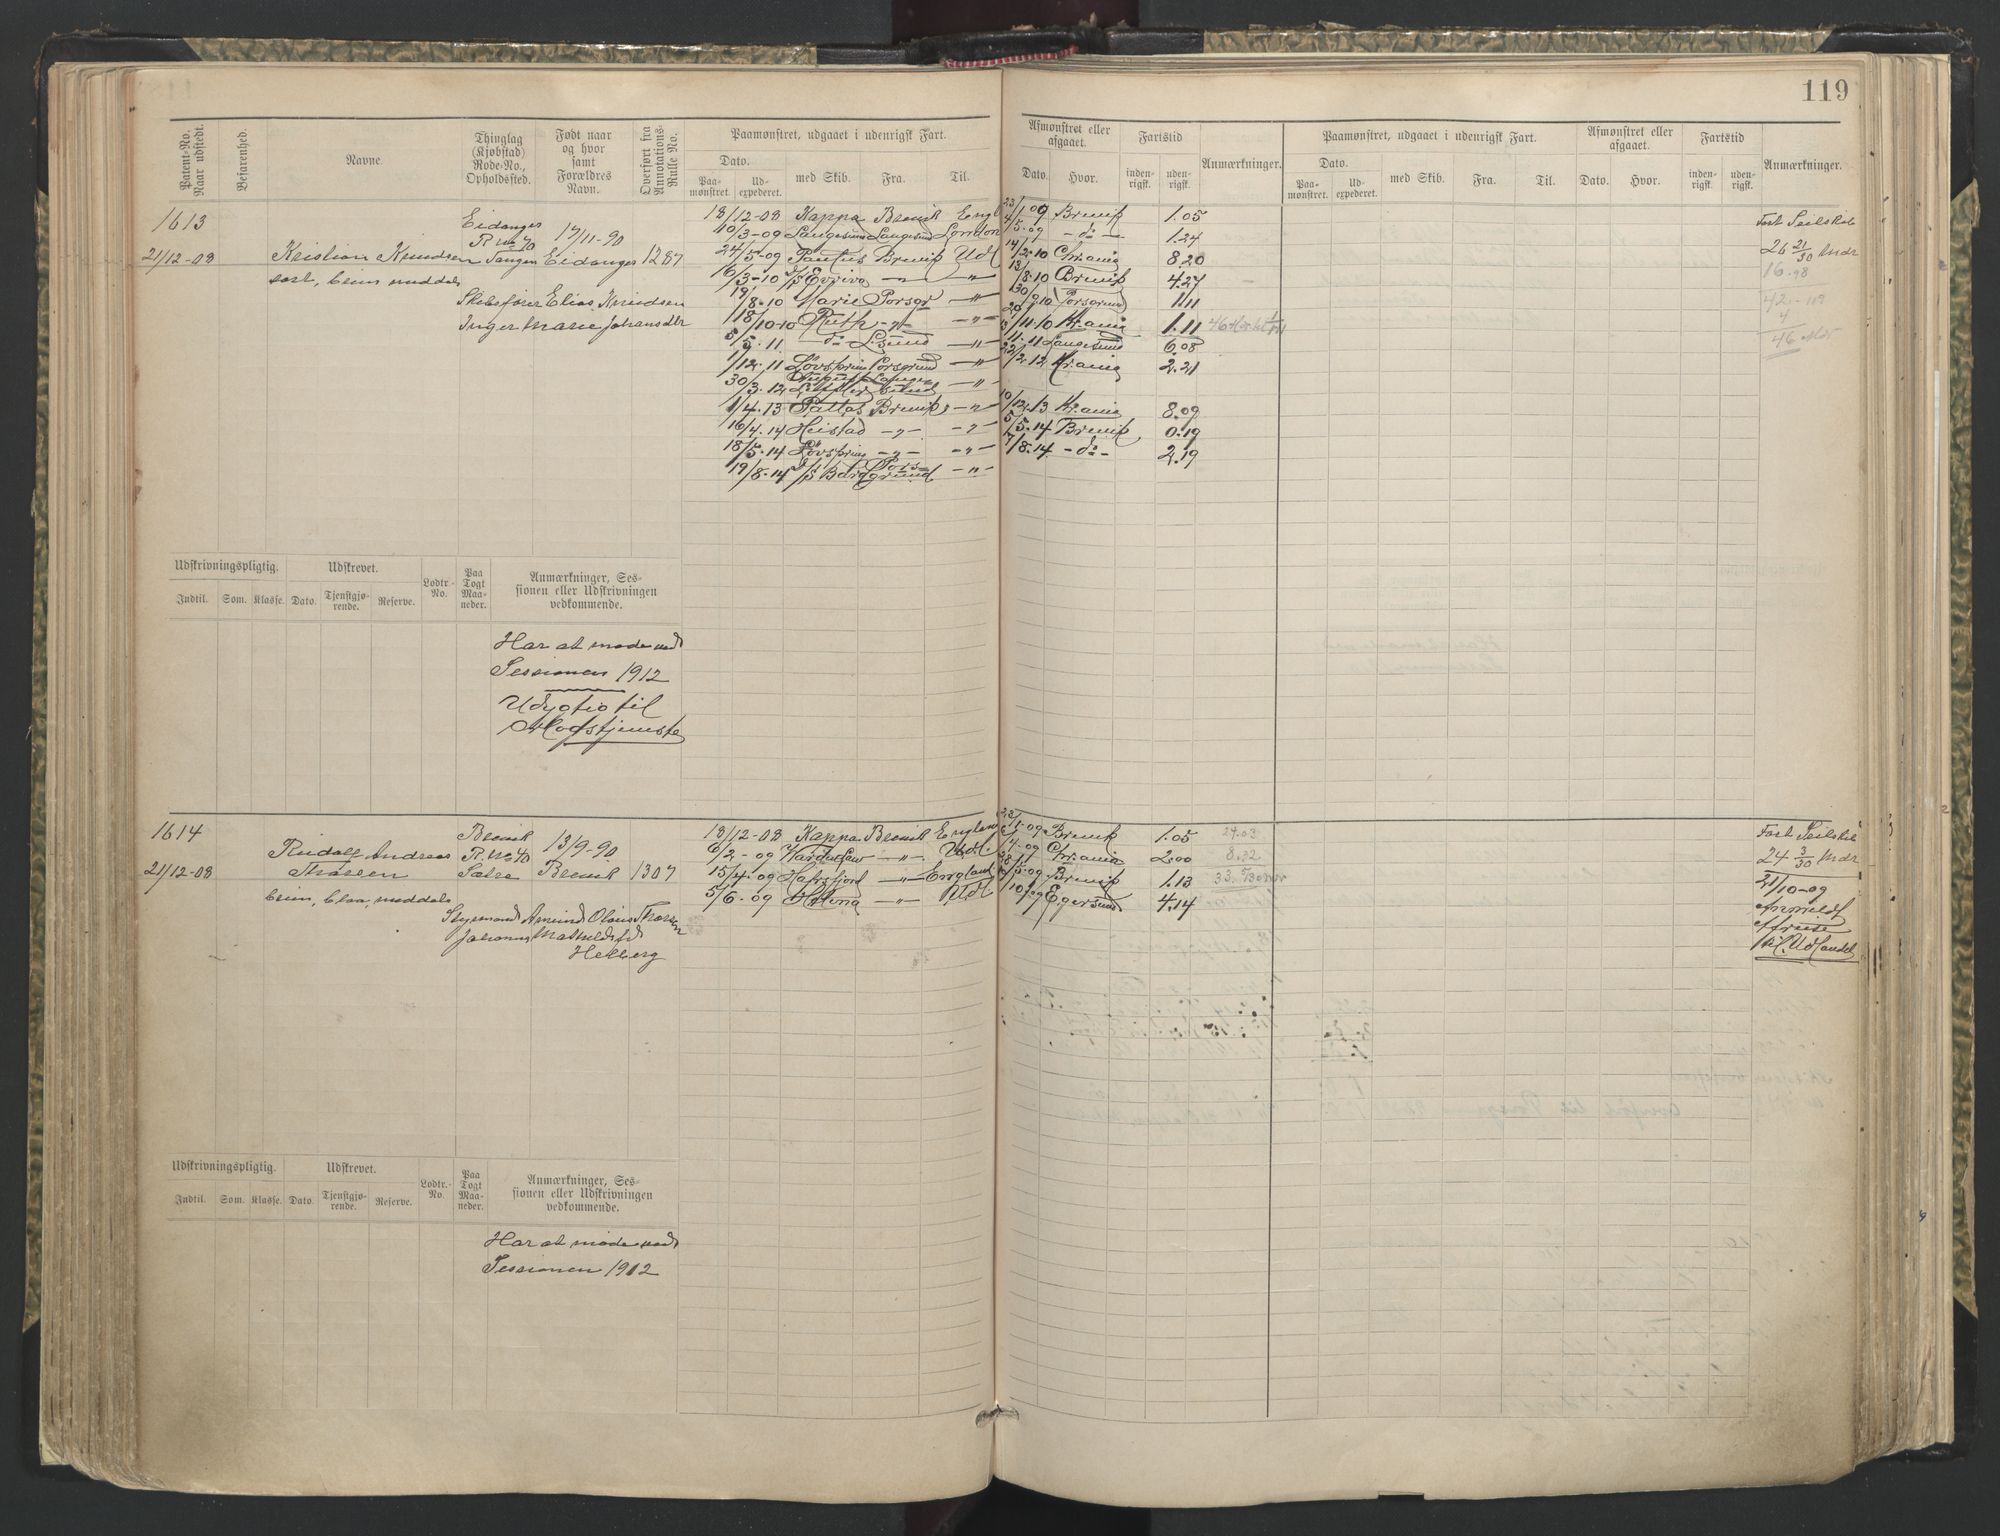 119
Patent-No. Naar udstedt.
Befarenhed.
Navne.
Thinglag (Kjøbstad) Rode-No., Opholdssted.
Født naar og hvor samt Forældres Navn.
Overført fra Annotations-Rulle No.
Paamønstret, udgaaet i udenrigsk Fart.
Dato.
Paamønstret.
Udexpederet.
med Skib.
Fra.
Til.
Afmønstret eller afgaaet.
Dato.
Hvor.
Fartstid
indenrigsk.
udenrigsk.
Anmærkninger.
Paamønstret, udgaaet i udenrigsk Fart.
Dato.
Paamønstret.
Udexpederet.
med Skib.
Fra.
Til.
Afmønstret eller afgaaet.
Dato.
Hvor.
Fartstid
indenrigsk.
udenrigsk.
Anmærkninger.
1613
21/12-08
Kristian Knudsen
sort, brun, middels
Eidanger
R No 40
Tangen
17/11-90
Eidanger
1287
Skibsfører Elias Knudsen
Inger Marie Johansdtr
18/12-08 Kappa Brevik Engl 23/1 09 Brevik 1.05
10/3-09 Langesund Langesund London 4/5-09 -do- 1.24
24/5-09 Brevik Udl 14/2-10 Chr.ania 8.20
16/3-10 -"- -"- 13/8-10 Brevik 4.27
19/8-10 Marie Porsgr -"- 30/9 10 Porsgrund 1.11
18/10-10 Ruth -"- -"- 29/11-10 Kr.ania 1.11
5/5-11 -do- L.sund -"- 11-11 Langesund 6.08
1/12-11 Løvspring Porsgrund -"- 22/2-12 Kr.ania 2.21
30/3.12 -"-
1/4.13 Pallas Brevik -"- 10/12-13 Kr.ania 8.09
16/4.14 Heistad -"- -"- 5/5.14 Brevik 0.19
18/5-14 Løvspring -"- -"- 7/8.14 -do- 2.19
19/8.14 Porsgrund -"-
Fart Seilskib
26 21/30 Mdr
16.98
42.
4
46 Mdr
Udskrivningspligtig.
Indtil.
Som.
Klasse.
Udskrevet.
Dato.
Tjenstgjørende.
Reserve.
Lodtr.-No.
Paa Togt Maaneder.
Anmærkninger, Sessionen eller Udskrivningen vedkommende.
Har at møde ved
Sessionen 1912
Udygtig til
Krigstjeneste
1614
21/12-08
Rudolf Andreas
Thorsen
brun, blaa, middels
Brevik
R. No 40
Sætre
13/9-90
Brevik
1307
Styrmand Amund Olaus Thorsen
Helberg
18/12-08 Kappa Brevik England 23/1-09 Brevik 1.05
6/2-09 -"- Udl. /4-09 Chr.ania 2.00
15/4-09 Hafrsfjord -"- England /5-09 Brevik 1.13
5/6-09 Helena -"- Udl /10 09 Egersund 4.14
24.03
8.22
Fart Seilskib
24 3/30 Mdr
21/10-09
Anmeldt
Afreise
til Udlandet
Udskrivningspligtig.
Indtil.
Som.
Klasse.
Udskrevet.
Dato.
Tjenstgjørende.
Reserve.
Lodtr.-No.
Paa Togt Maaneder.
Anmærkninger, Sessionen eller Udskrivningen vedkommende.
Har at møde ved
Sessionen 1912